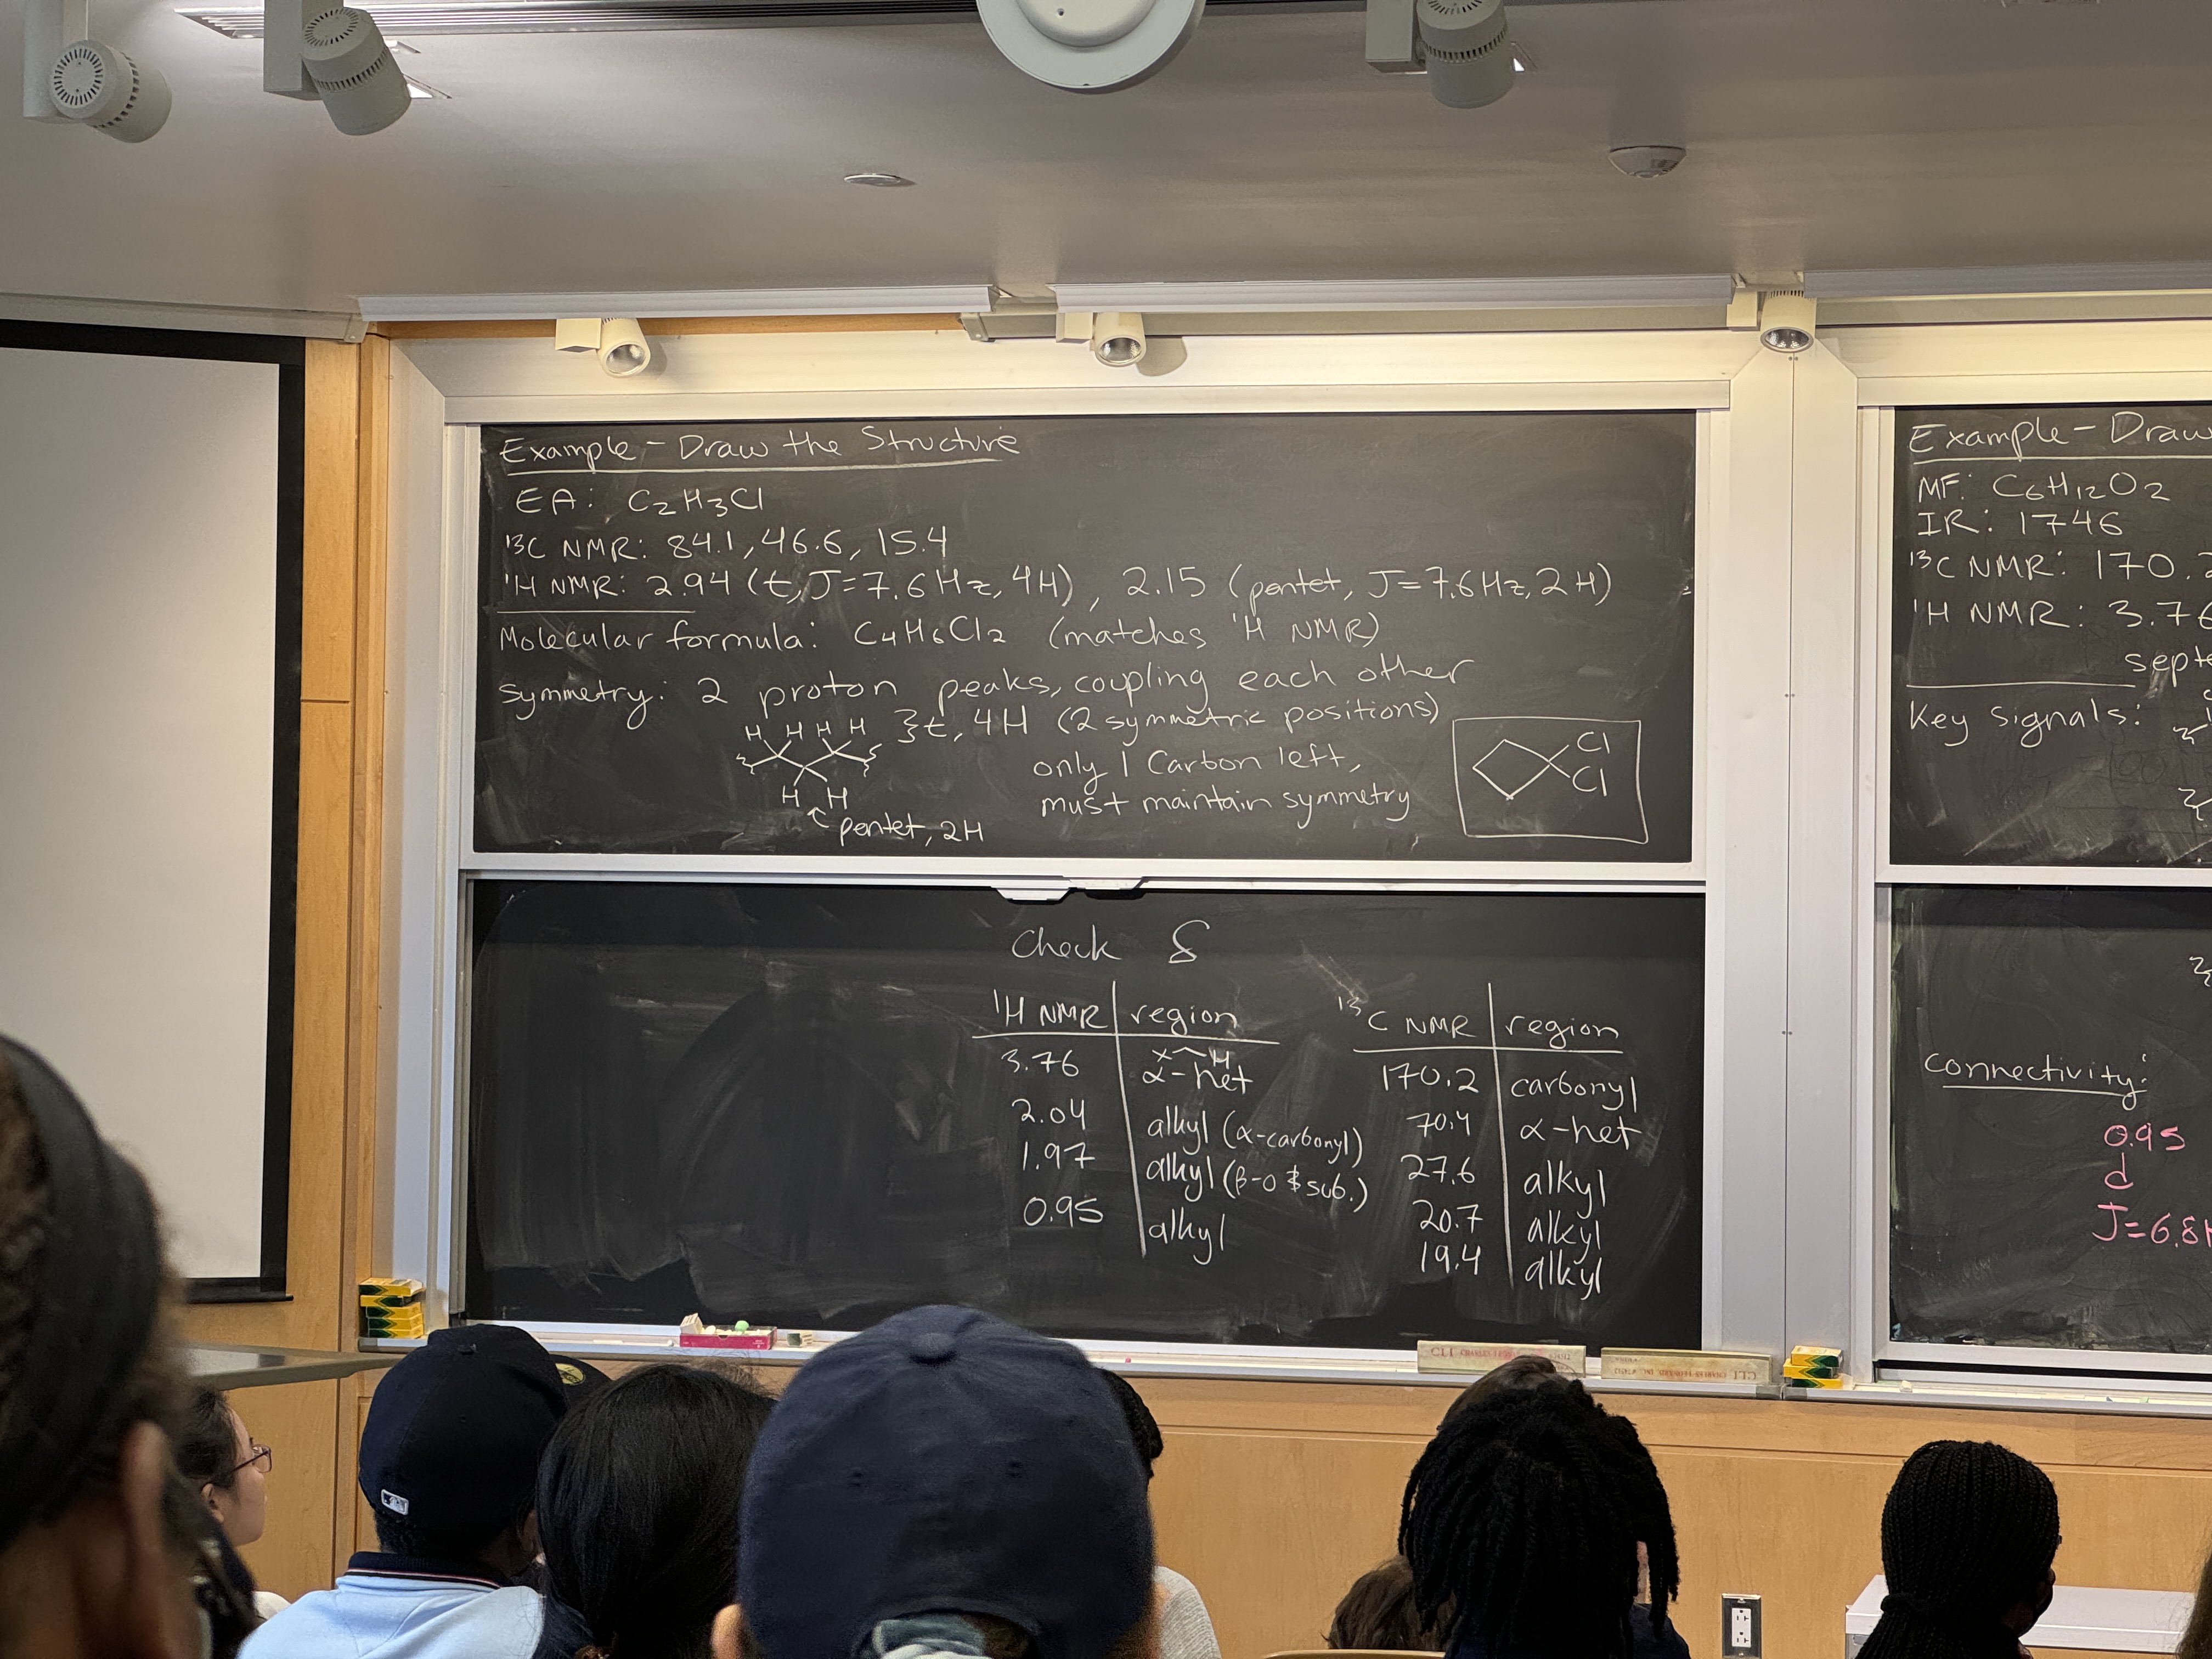 Example - Draw the Structure
EA: C₂H₃Cl
¹³C NMR: 84.1, 46.6, 15.4
¹H NMR: 2.94 (t, J=7.6Hz, 4H), 2.15 (pentet, J=7.6Hz, 2H)
Molecular formula: C₄H₆Cl₂ (matches ¹H NMR)
symmetry: 2 proton peaks, coupling each other
H H H H }t, 4H (2 symmetric positions)
only 1 Carbon left,
must maintain symmetry
H H
pentet, 2H
Cl
Cl
Check δ
¹H NMR | region
3.76 | α-het
X H
2.04 | alkyl (α-carbonyl)
1.97 | alkyl (β-O & sub.)
0.95 | alkyl
¹³C NMR | region
170.2 | carbonyl
70.4 | α-het
27.6 | alkyl
20.7 | alkyl
19.4 | alkyl
Example - Draw
MF: C₆H₁₂O₂
IR: 1746
¹³C NMR: 170.2
¹H NMR: 3.76
sept
Key signals:
connectivity:
0.95
d
J=6.8H